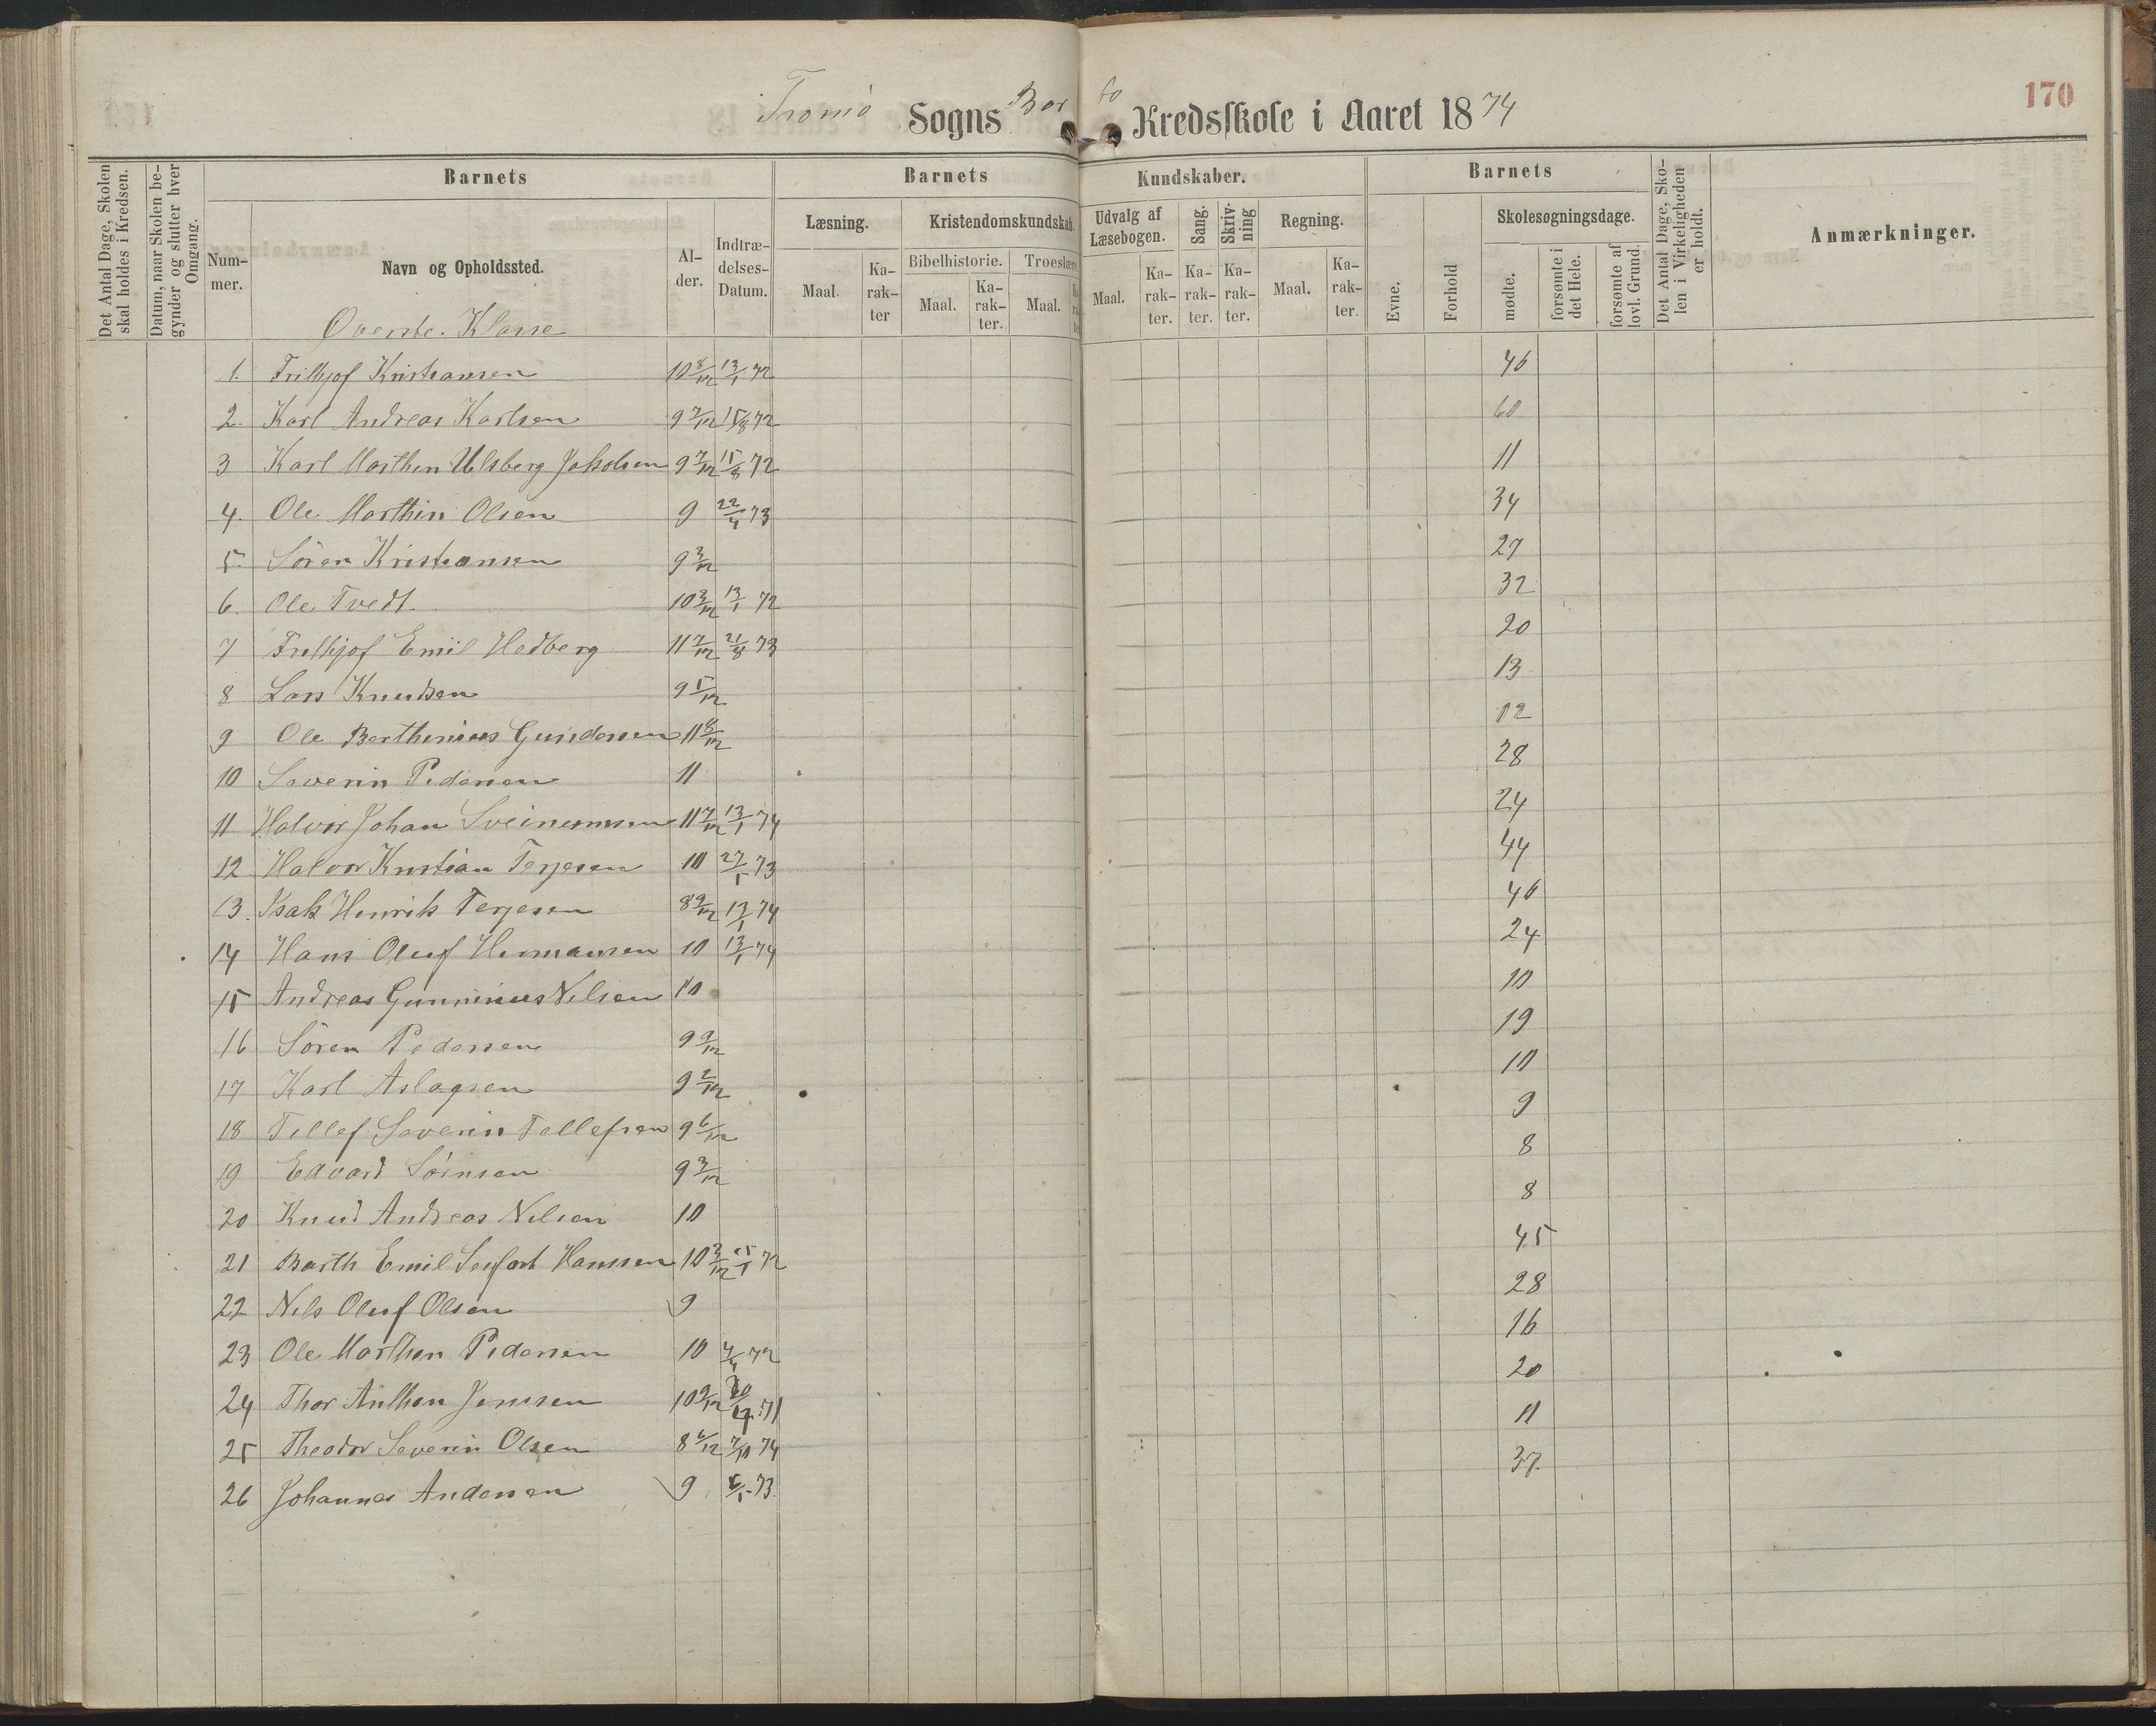 Tromö Sogns Borbo Kredsskole i Aaret 1874
170
Det Antal Dage, Skolen skal holdes i Kredsen.
Datum, naar Skolen begynder og slutter hver Omgang.
Barnets
Nummer.
Navn og Opholdssted.
Alder.
Indtrædelses-Datum.
Barnets Kundskaber.
Læsning.
Maal.
Karakter
Kristendomskundskab.
Bibelhistorie.
Maal.
Karakter.
Troeslære
Maal.
Udvalg af Læsebogen.
Maal.
Karakter.
Sang.
Karakter.
Skrivning
Karakter.
Regning.
Maal.
Karakter.
Barnets
Evne.
Forhold
Skolesøgningsdage.
mødte.
forsømte i det Hele.
forsømte af lovl. Grund.
Det Antal Dage, Skolen i Virkeligheden er holdt.
Anmærkninger.
Överste Klasse
1. Frithjof Kristiansen 10 8/12 13/1 72 46
2. Karl Andreas Karlsen 9 7/12 15/8 72 60
3 Karl Marthin Ulsberg Jakobsen 9 7/12 15/8 72 11
4. Ole Marthin Olsen 9 22/4 73 34
5. Sören Kristiansen 9 3/12 27
6. Ole Tvedt 10 3/12 13/1 72 32
7 Frithjof Emil Hedberg 11 7/12 21/8 73 20
8 Lars Knudsen 9 5/12 13
9 Ole Berthinius Gundersen 11 8/12 12
10 Severin Pedersen 11 28
11 Halvor Johan Sveinumsen 11 7/12 13/1 74 24
12 Halvor Kristian Terjesen 10 27/5 73 44
13. Isak Henrik Terjesen 8 9/12 13/1 74 46
14 Hans Oluf Hermansen 10 13/1 74 24
15 Andreas Gunninius Nilsen 10 10
16 Sören Pedersen 9 9/12 19
17 Karl Aslagsen 9 2/12 10
18 Tellef Severin Tellefsen 9 6/12 9
19 Edvard Sörnsen 9 3/12 8
20 Knud Andreas Nilsen 10 8
21 Barth Emil Seyfart Hanssen 10 3/12 25/1 72 45
22 Nils Oluf Olsen 9 28
23 Ole Marthin Pedersen 10 4/4 72 16
24 Thor Anthon Jensen 10 9/12 71 20
25 Theodor Severin Olsen 8 6/12 7/10 74 11
26 Johannes Andersen 9 73 37